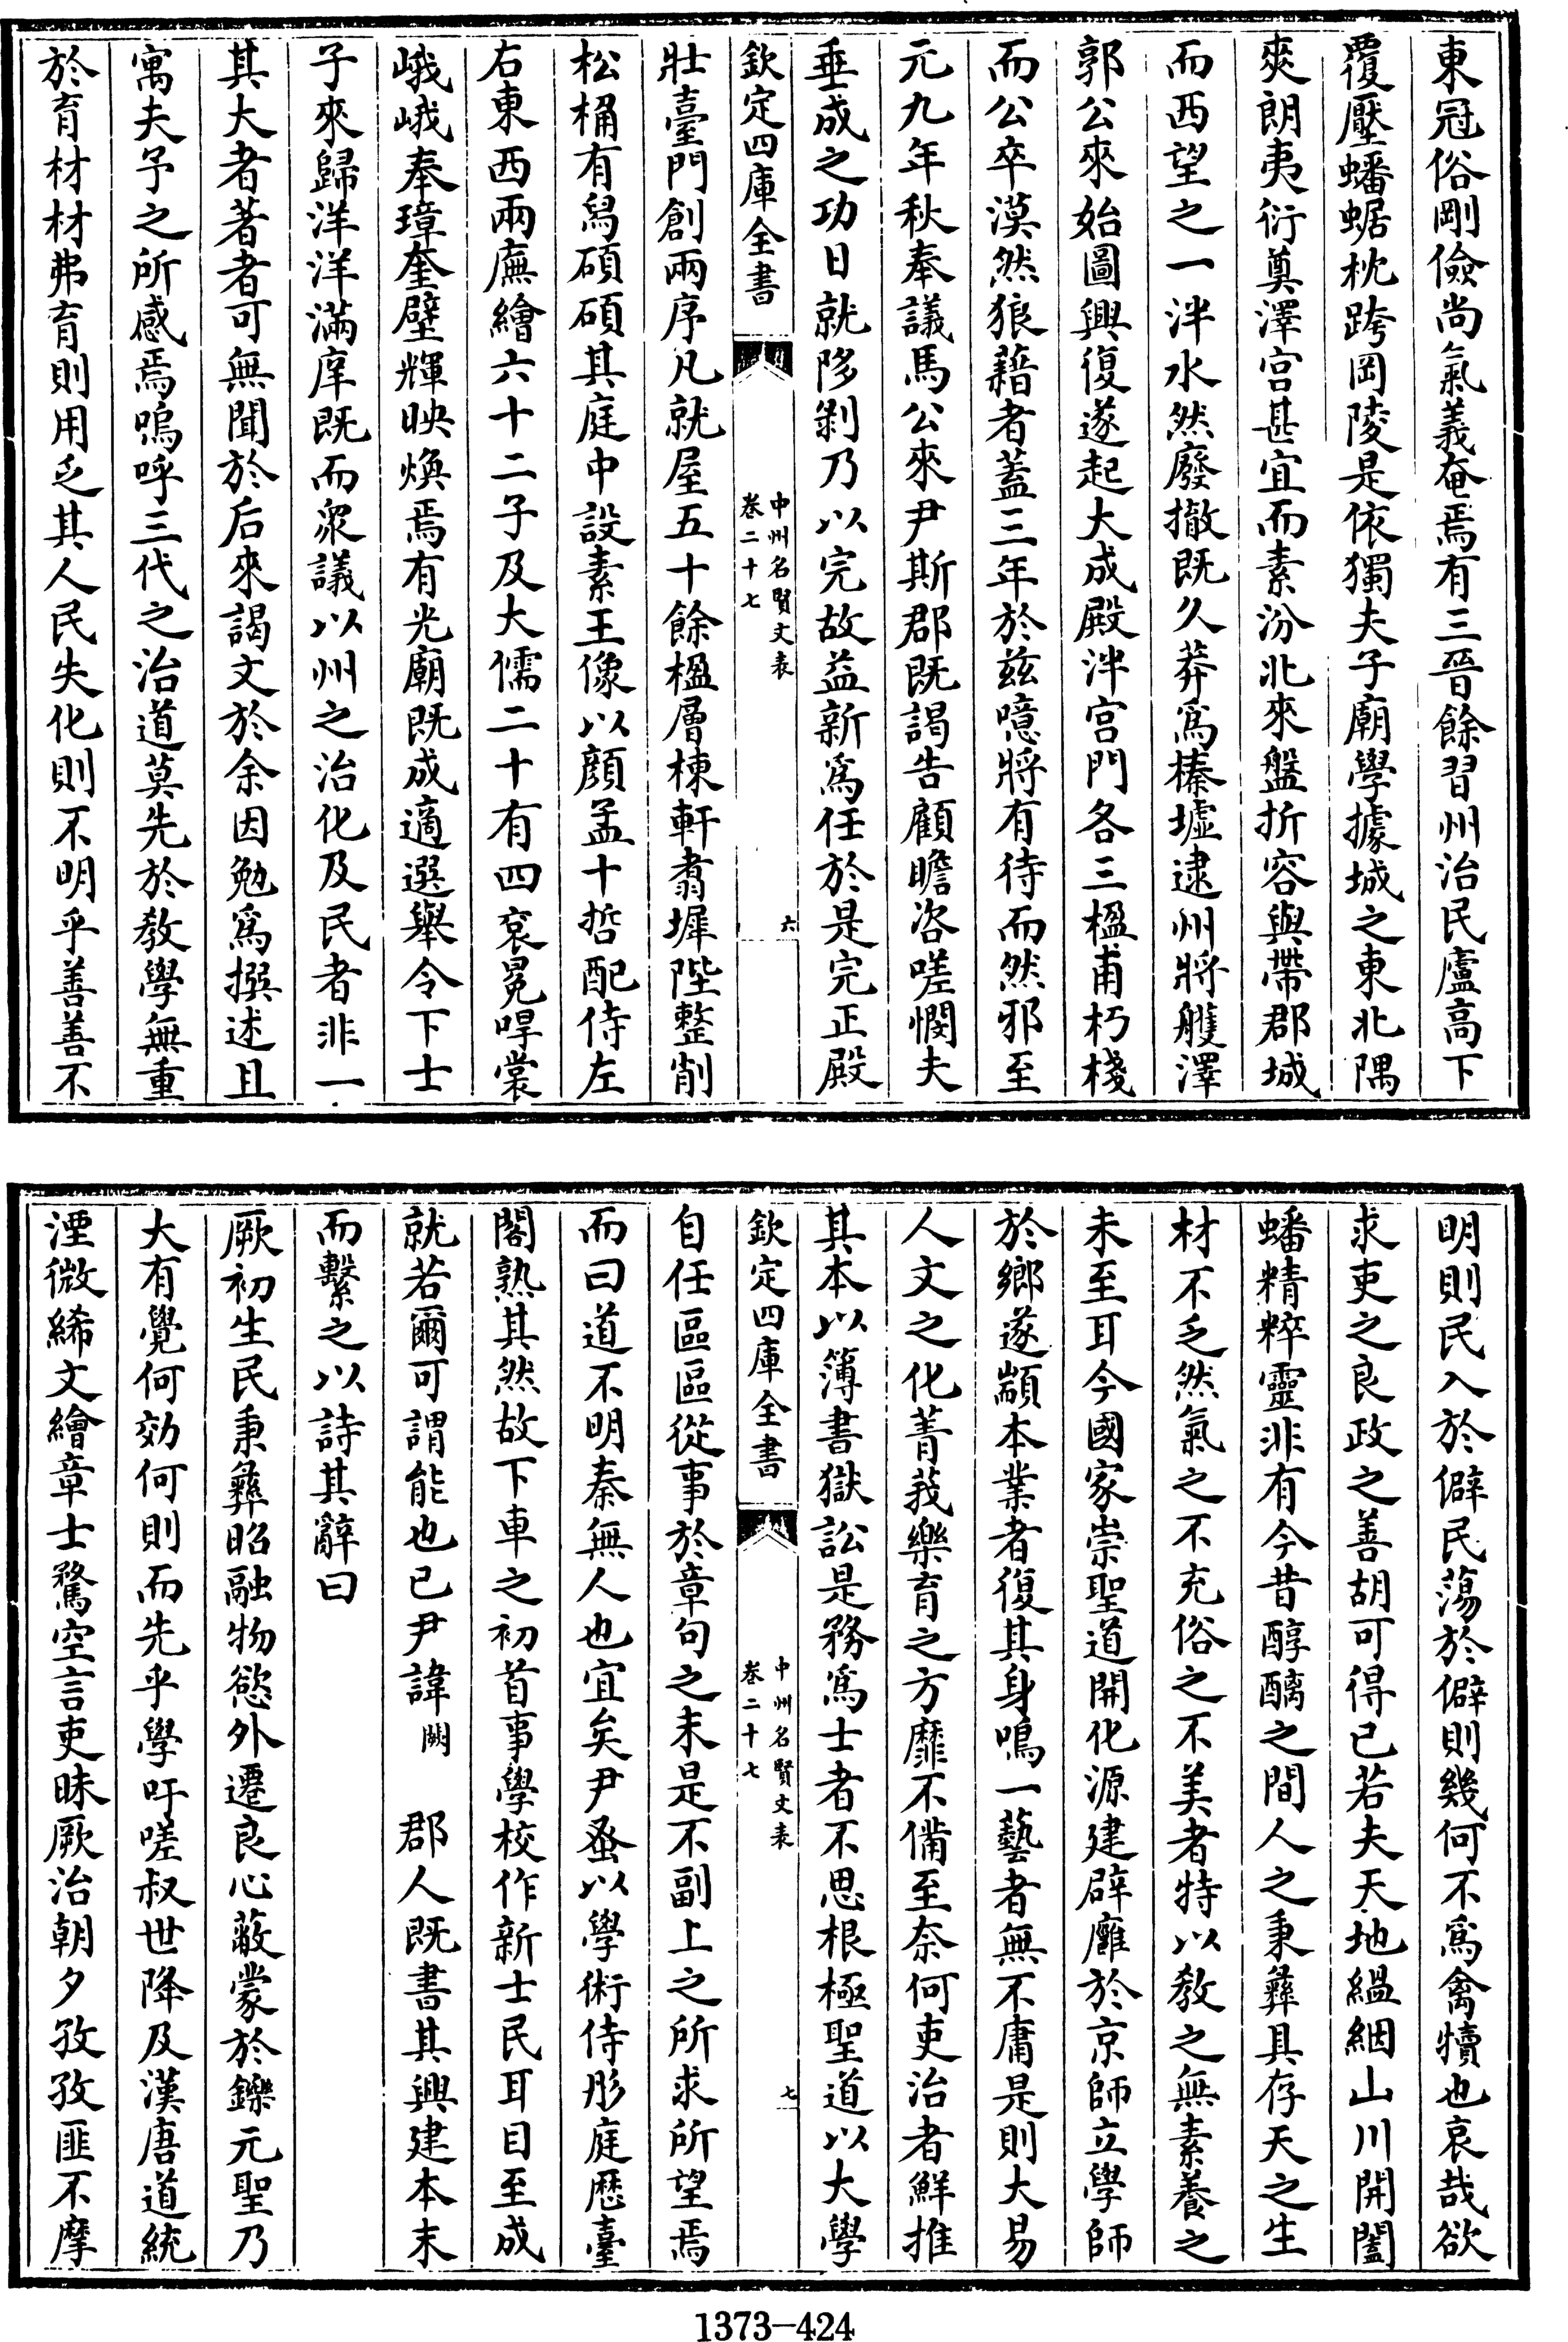 東冠俗剛儉尚氣義奄焉有三晉餘習州治民廬高下
覆壓蟠蜛枕跨岡陵是依獨夫子廟學據城之東北隅
夾朗夷衍奠澤宫甚宜而素汾北來盤折容與帶郡城
而西望之一泮水然廢撤既久莽爲榛墟逮州將艧澤
郭公來始圖興復遂起大成殿泮宫門各三楹甫朽棧
而公卒漠然狼藉者蓋三年於兹噫將有待而然邪至
元九年秋奉議馬公來尹斯郡既謁告顧瞻咨嗟憫夫
垂成之功日就陊剝乃以完故益新爲任於是完正殿
欽定四庫全書
中州名賢文表
卷二十七
六
壯臺門創兩序凡就屋五十餘楹層棟軒翥墀陛整削
松桷有舄碩碩其庭中設素王像以顔孟十哲配侍左
右東西兩廡繪六十二子及大儒二十有四衮冕哻裳
峨峨奉璋奎壁輝映煥焉有光廟既成適選舉令下士
子來歸洋洋滿庠既而衆議以州之治化及民者非一
其大者著者可無聞於后來謁文於余因勉爲撰述且
寓夫予之所感焉嗚呼三代之治道莫先於教學無重
於育材材弗育則用乏其人民失化則不明乎善善不
明則民入於僻民蕩於僻則幾何不爲禽犢也哀哉欲
求吏之良政之善胡可得已若夫天地緼絪山川開闔
蟠精粹靈非有今昔醇醨之間人之秉彜具存天之生
材不乏然氣之不充俗之不美者特以教之無素養之
未至耳今國家崇聖道開化源建辟廱於京師立學師
於鄉遂顓本業者復其身鳴一藝者無不庸是則大易
人文之化菁莪樂育之方靡不備至奈何吏治者鮮推
其本以簿書獄訟是務爲士者不思根極聖道以大學
欽定四庫全書
中州名賢文表
卷二十七
七
自任區區從事於章句之末是不副上之所求所望焉
而曰道不明秦無人也宜矣尹蚤以學術侍彤庭歷臺
閣熟其然故下車之初首事學校作新士民耳目至成
就若爾可謂能也已尹諱闕 郡人既書其興建本末
而繫之以詩其辭曰
厥初生民秉彜昭融物慾外遷良心蔽蒙於鑠元聖乃
大有覺何効何則而先乎學吁嗟叔世降及漢唐道統
湮微絺文繪章士騖空言吏昧厥治朝夕孜孜匪不摩
1373-424